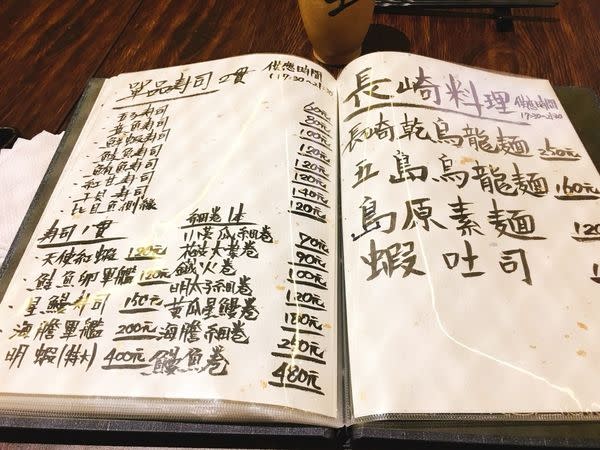 單品壽司 2貫
供應時間
(17:30~21:30
·玉子壽司 60元
·章魚壽司 80元
·鮮蝦壽司 100元
·鮭魚壽司 120元
·鮪魚壽司 120元
·紅甘壽司 120元
·干貝壽司 140元
·比目魚側緣 120元
壽司1貫
·天使紅蝦 120元
·鮭魚卵軍艦 120元
·星鰻壽司 150元
·海膽軍艦 200元
·明蝦(特大) 400元
細卷1本
小黃瓜細卷 70元
花枝大葉卷 90元
鐵火卷 100元
明太子細卷 120元
黃瓜星鰻卷 130元
海膽細卷 250元
鰻魚卷 480元
長崎料理
供應時間
17:30~21:30
長崎乾烏龍麵 250元
五島烏龍麵 160元
島原素麵 120
蝦吐司 1